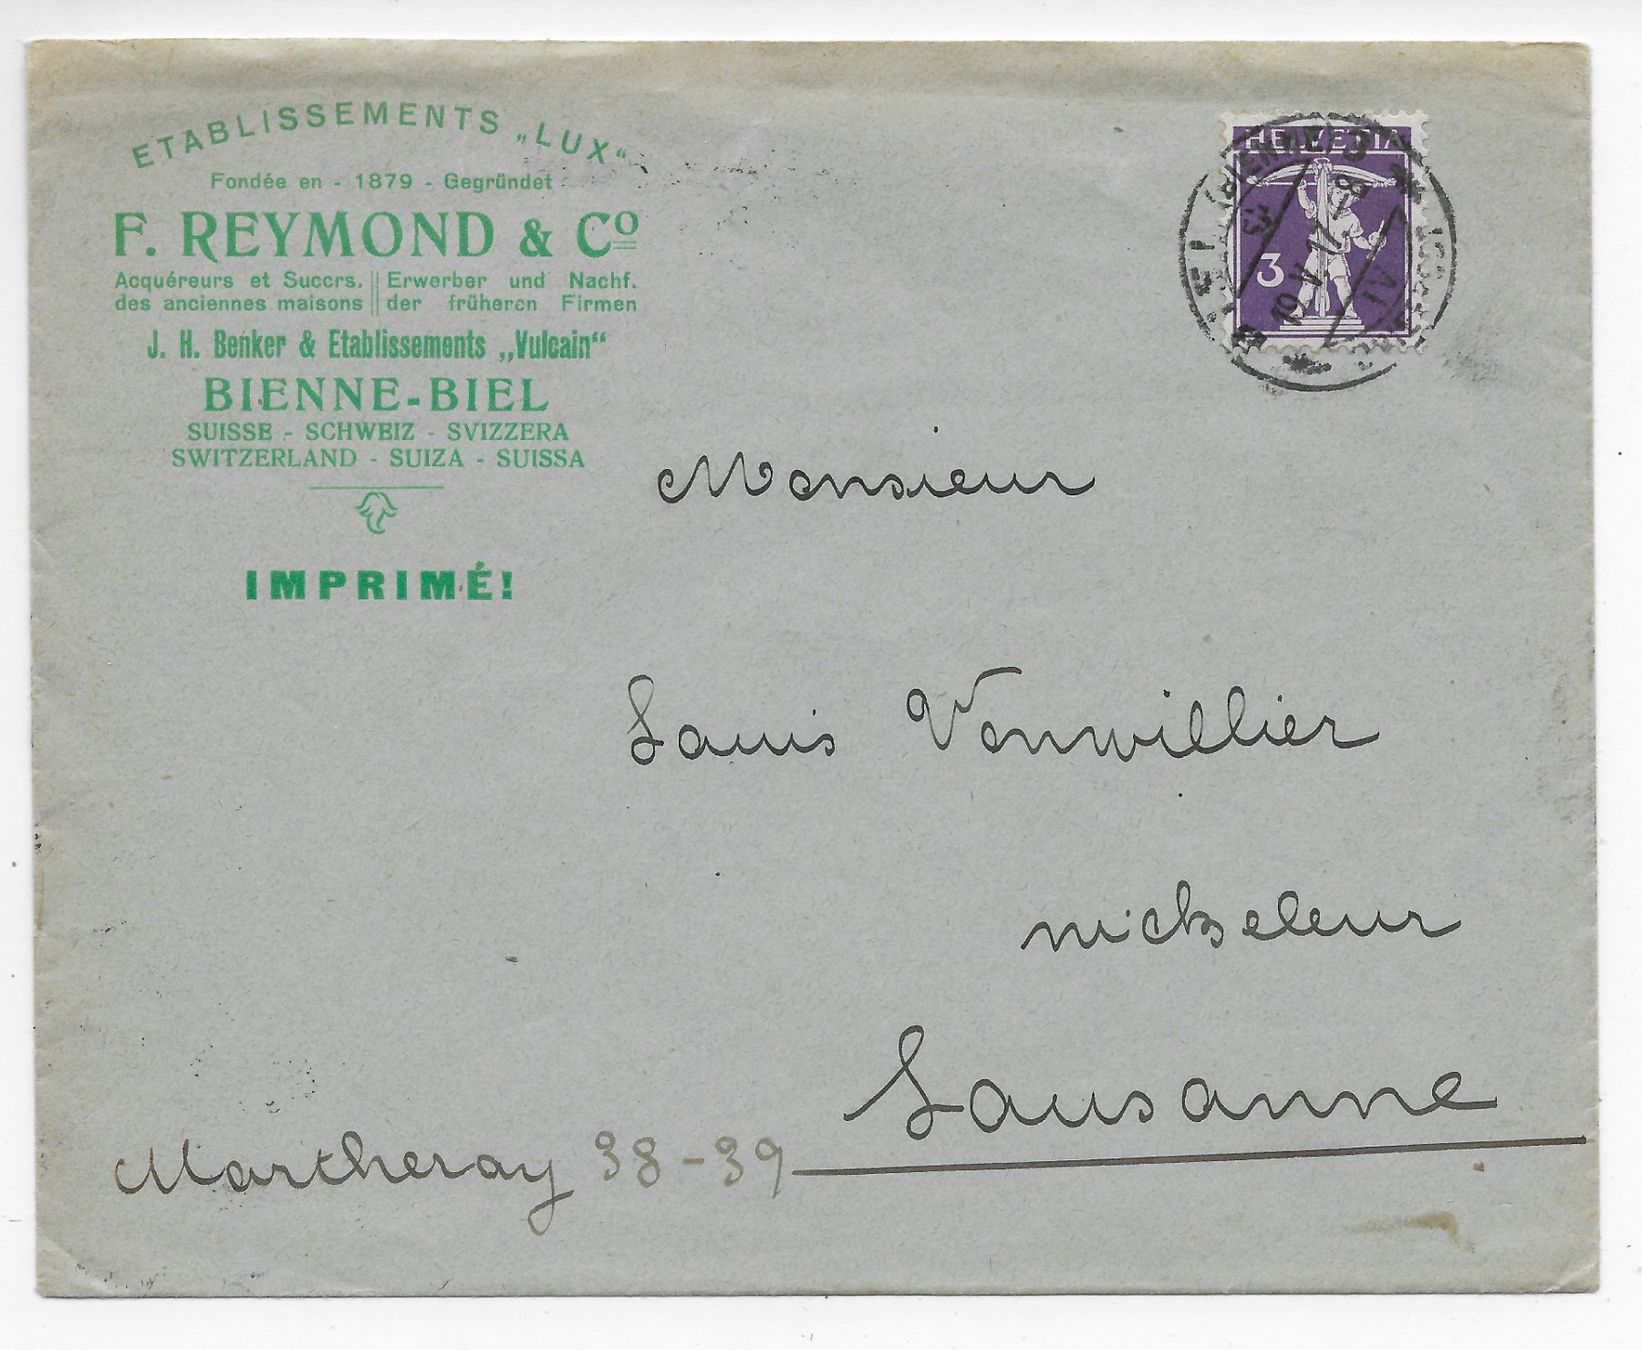 ETABLISSEMENTS „LUX“
Fondée en - 1879 - Gegründet
F. REYMOND & Cº
Acquéreurs et Succrs. || Erwerber und Nachf.
des anciennes maisons || der früheren Firmen
J. H. Benker & Etablissements „Vulcain“
BIENNE-BIEL
SUISSE - SCHWEIZ - SVIZZERA
SWITZERLAND - SUIZA - SUISSA
IMPRIMÉ!
HELVETIA
3
BIEL (BIENNE) 3
19.IV.17.-8
Monsieur
Louis Vonwillier
nickeleur
Lausanne
Martheray 38-39